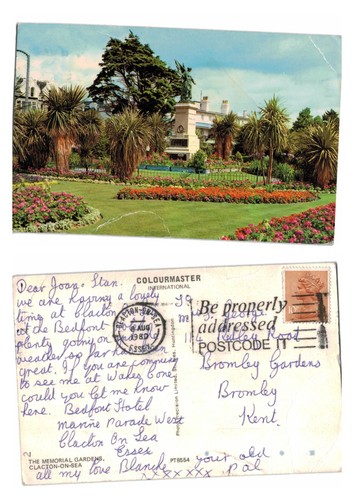 Dear Joan & Stan.
we are having a lovely
time at Clacton
at the Bedfort
plenty going on
weather so far has been
great. If you are coming
to see me at Wakes Cone
could you let me know
here. Bedfort Hotel
Marine Parade West
Clacton On Sea
Essex
all my love Blanche
xxxxxxx
your old
pal
COLOURMASTER
INTERNATIONAL
CLACTON-ON-SEA
AUG
1980
ESSEX
Be properly
addressed
POSTCODE IT
39
George
Road
Bromley Gardens
Bromley
Kent.
THE MEMORIAL GARDENS,
CLACTON-ON-SEA
PT8654